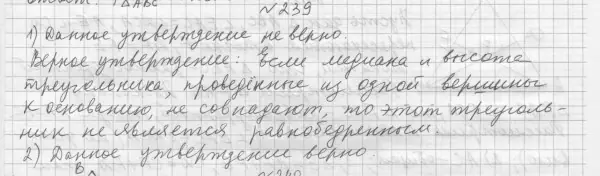 №239
1) Данное утверждение не верно.
Верное утверждение: Если медиана и высота
треугольника, проведённые из одной вершины
к основанию, не совпадают, то этот треуголь-
ник не является равнобедренным.
2) Данное утверждение верно.